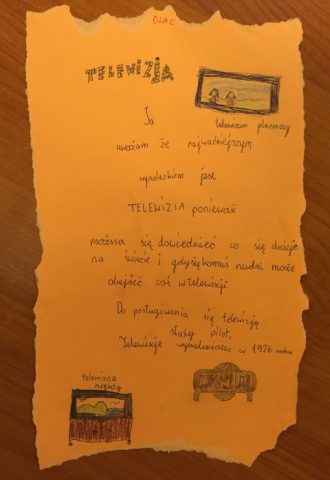 OLA C.
TELEWIZJA
telewizor plazmowy
Ja
uważam że najważniejszym
wynalazkiem jest
TELEWIZJA ponieważ
można się dowiedzieć co się dzieje
na świecie i gdy się komuś nudzi może
obejżeć coś w telewizji
Do posługiwania się telewizją
służy pilot,
Telewizję wynaleziono w 1926 roku
telewizor
zwykły